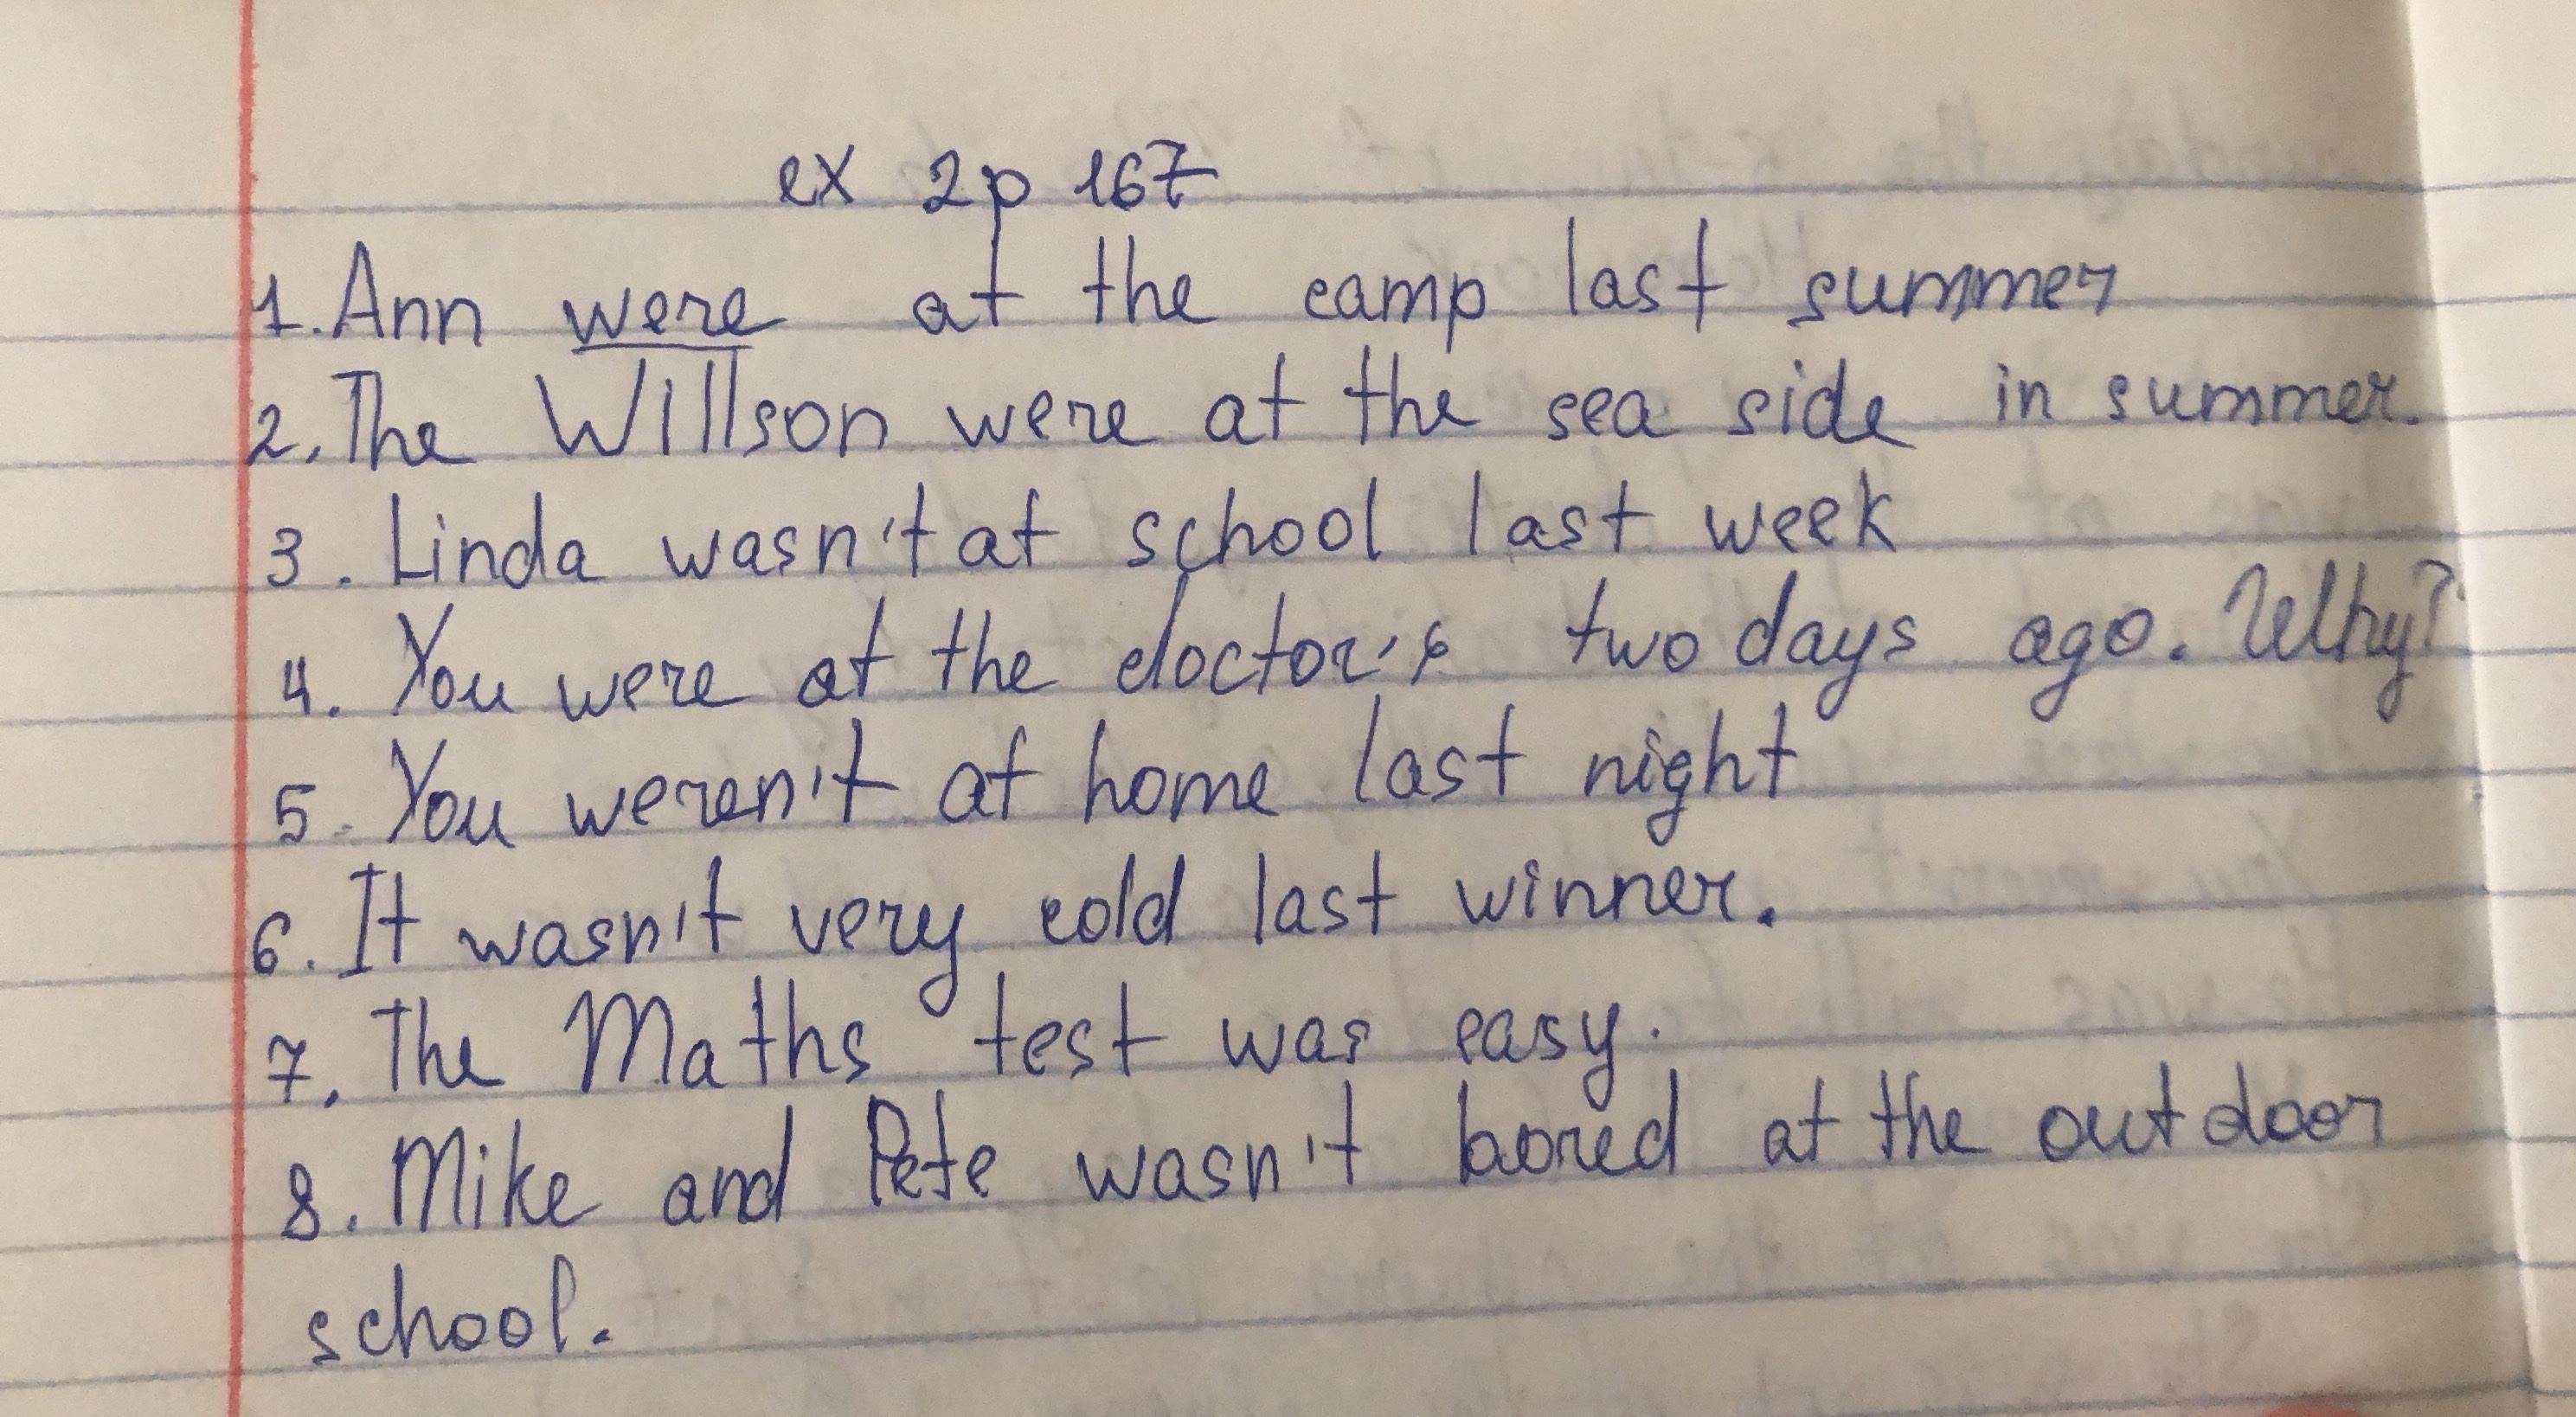 ex 2p 167
1. Ann were at the camp last summer
2. The Willson were at the sea side in summer.
3. Linda wasn't at school last week
4. You were at the doctor's two days ago. Why?
5. You weren't at home last night
6. It wasn't very cold last winner.
7. The Maths test was easy.
8. Mike and Pete wasn't bored at the outdoor
school.